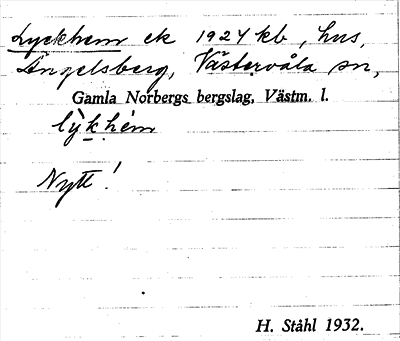 Lyckhem ek 1927 kb, hus,
Ängelsberg, Västervåla sn,
Gamla Norbergs bergslag, Västm. l.
lỳkhèm
Nytt!
H. Ståhl 1932.